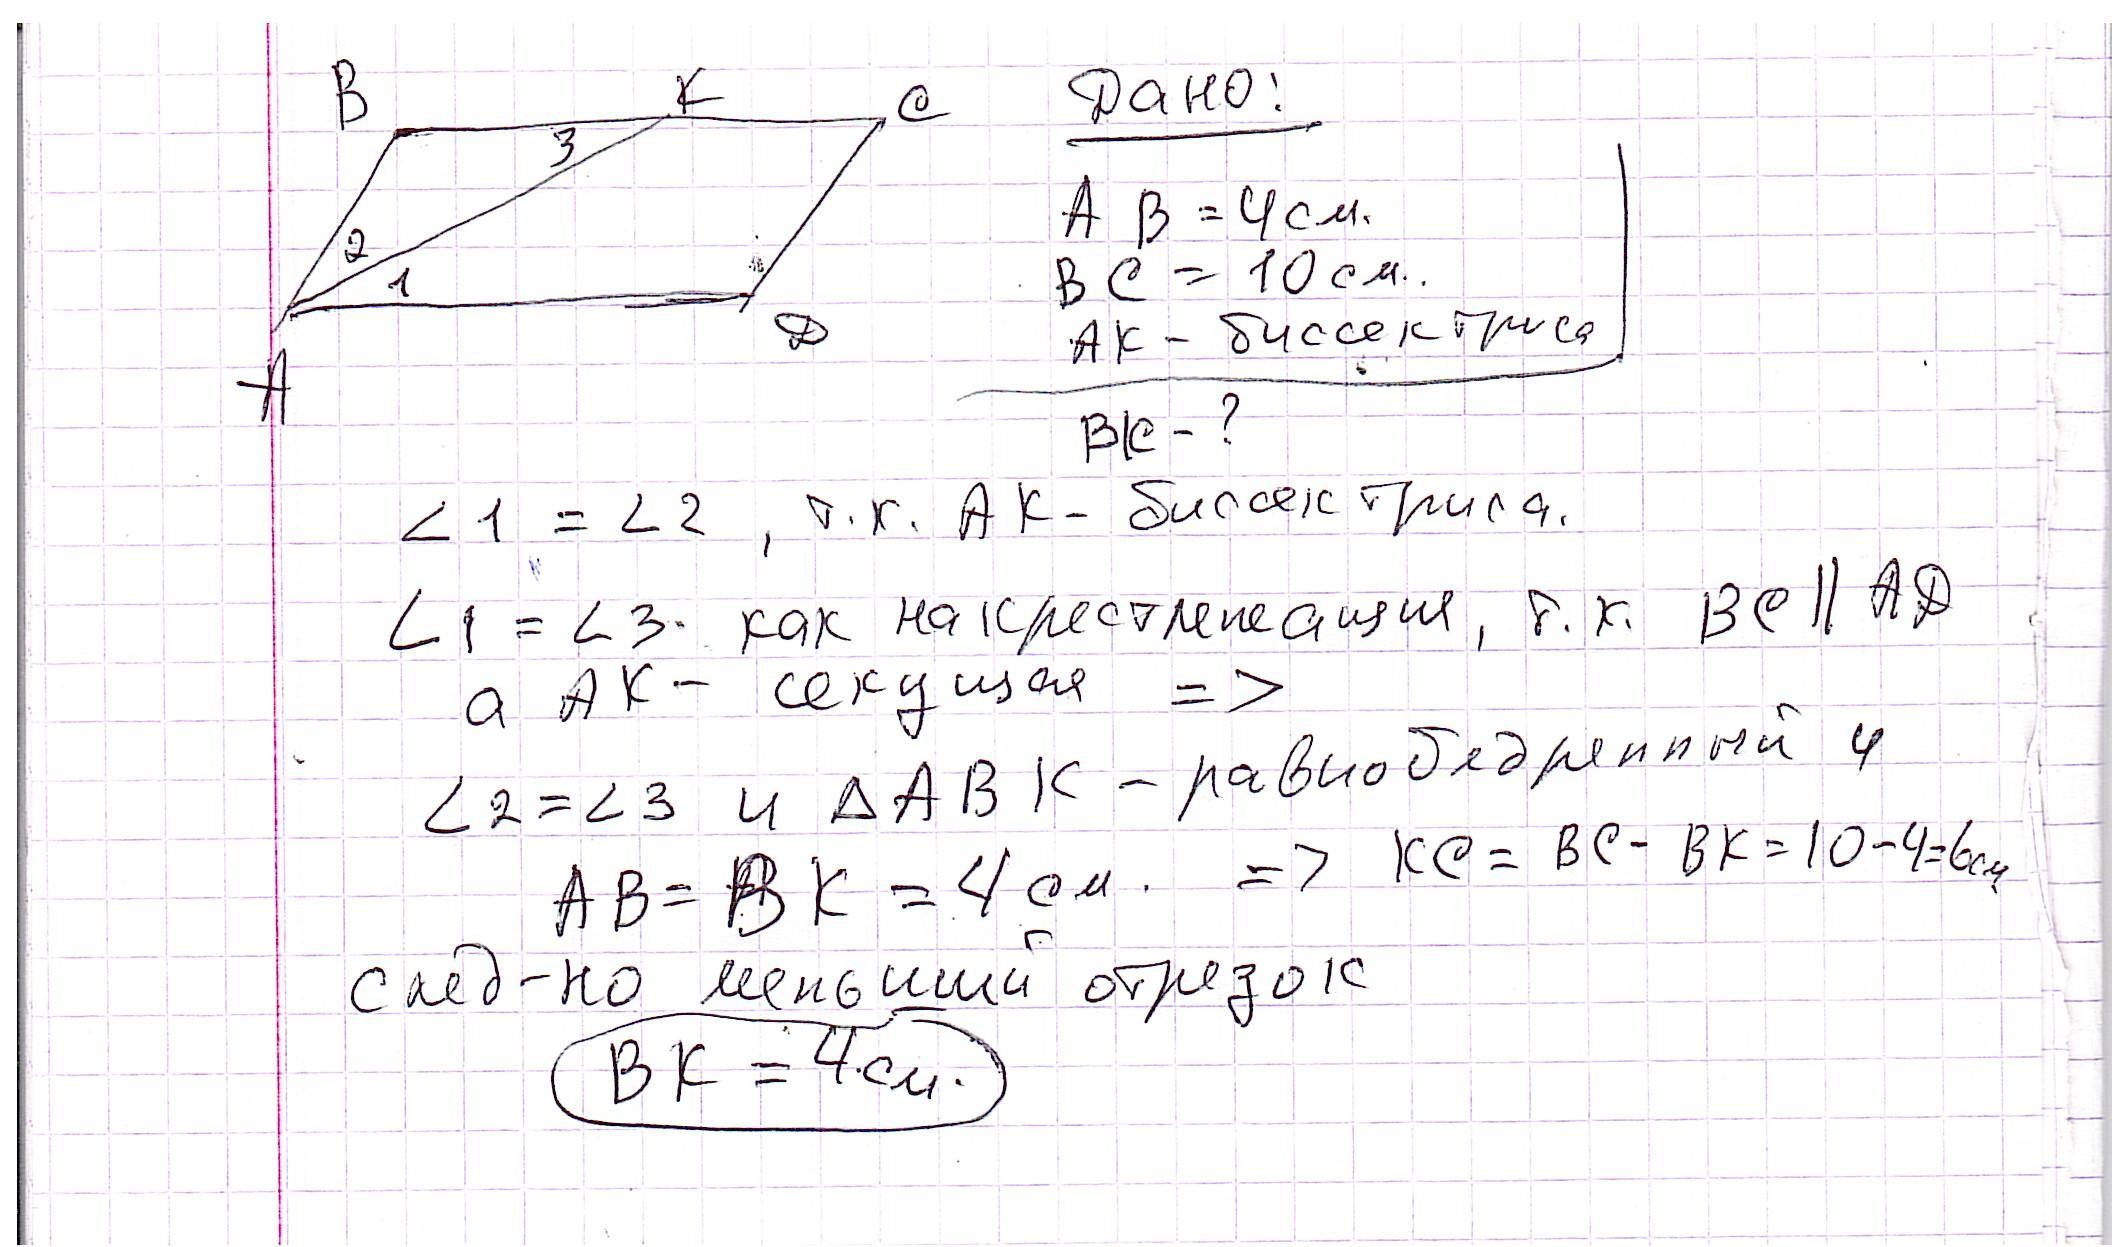 B K C
3
2
1
A D
Дано:
AB = 4 см.
BC = 10 см.
AK - биссектриса
BK - ?
∠1 = ∠2, т.к. AK - биссектриса.
∠1 = ∠3. как накрестлежащия, т.к. BC || AD
а AK - секущая =>
∠2 = ∠3 и △ABK - равнобедренный и
AB = BK = 4 см. => KC = BC - BK = 10 - 4 = 6 см
след-но меньший отрезок
BK = 4 см.